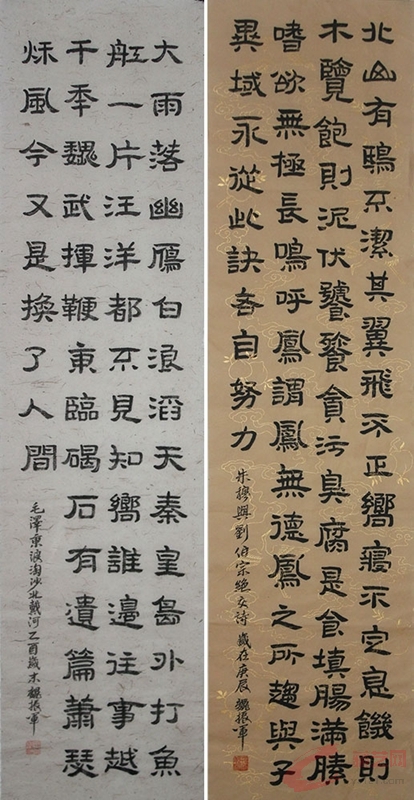 北山有鴟不潔其翼飛不正嚮寢不定息饑則
木覽飽則泥伏饕餮貪污臭腐是食填腸滿膆
嗜欲無極長鳴呼鳳謂鳳無德鳳之所趨與子
異域永從此訣各自努力
朱穆與劉伯宗絕交詩 歲在庚辰 魏振軍
大雨落幽鴈白浪滔天秦皇島外打魚
舡一片汪洋都不見知嚮誰邊往事越
千秊魏武揮鞭東臨碣石有遺篇蕭瑟
秌風今又是換了人間
毛澤東浪淘沙北戴河乙酉歲末魏振軍